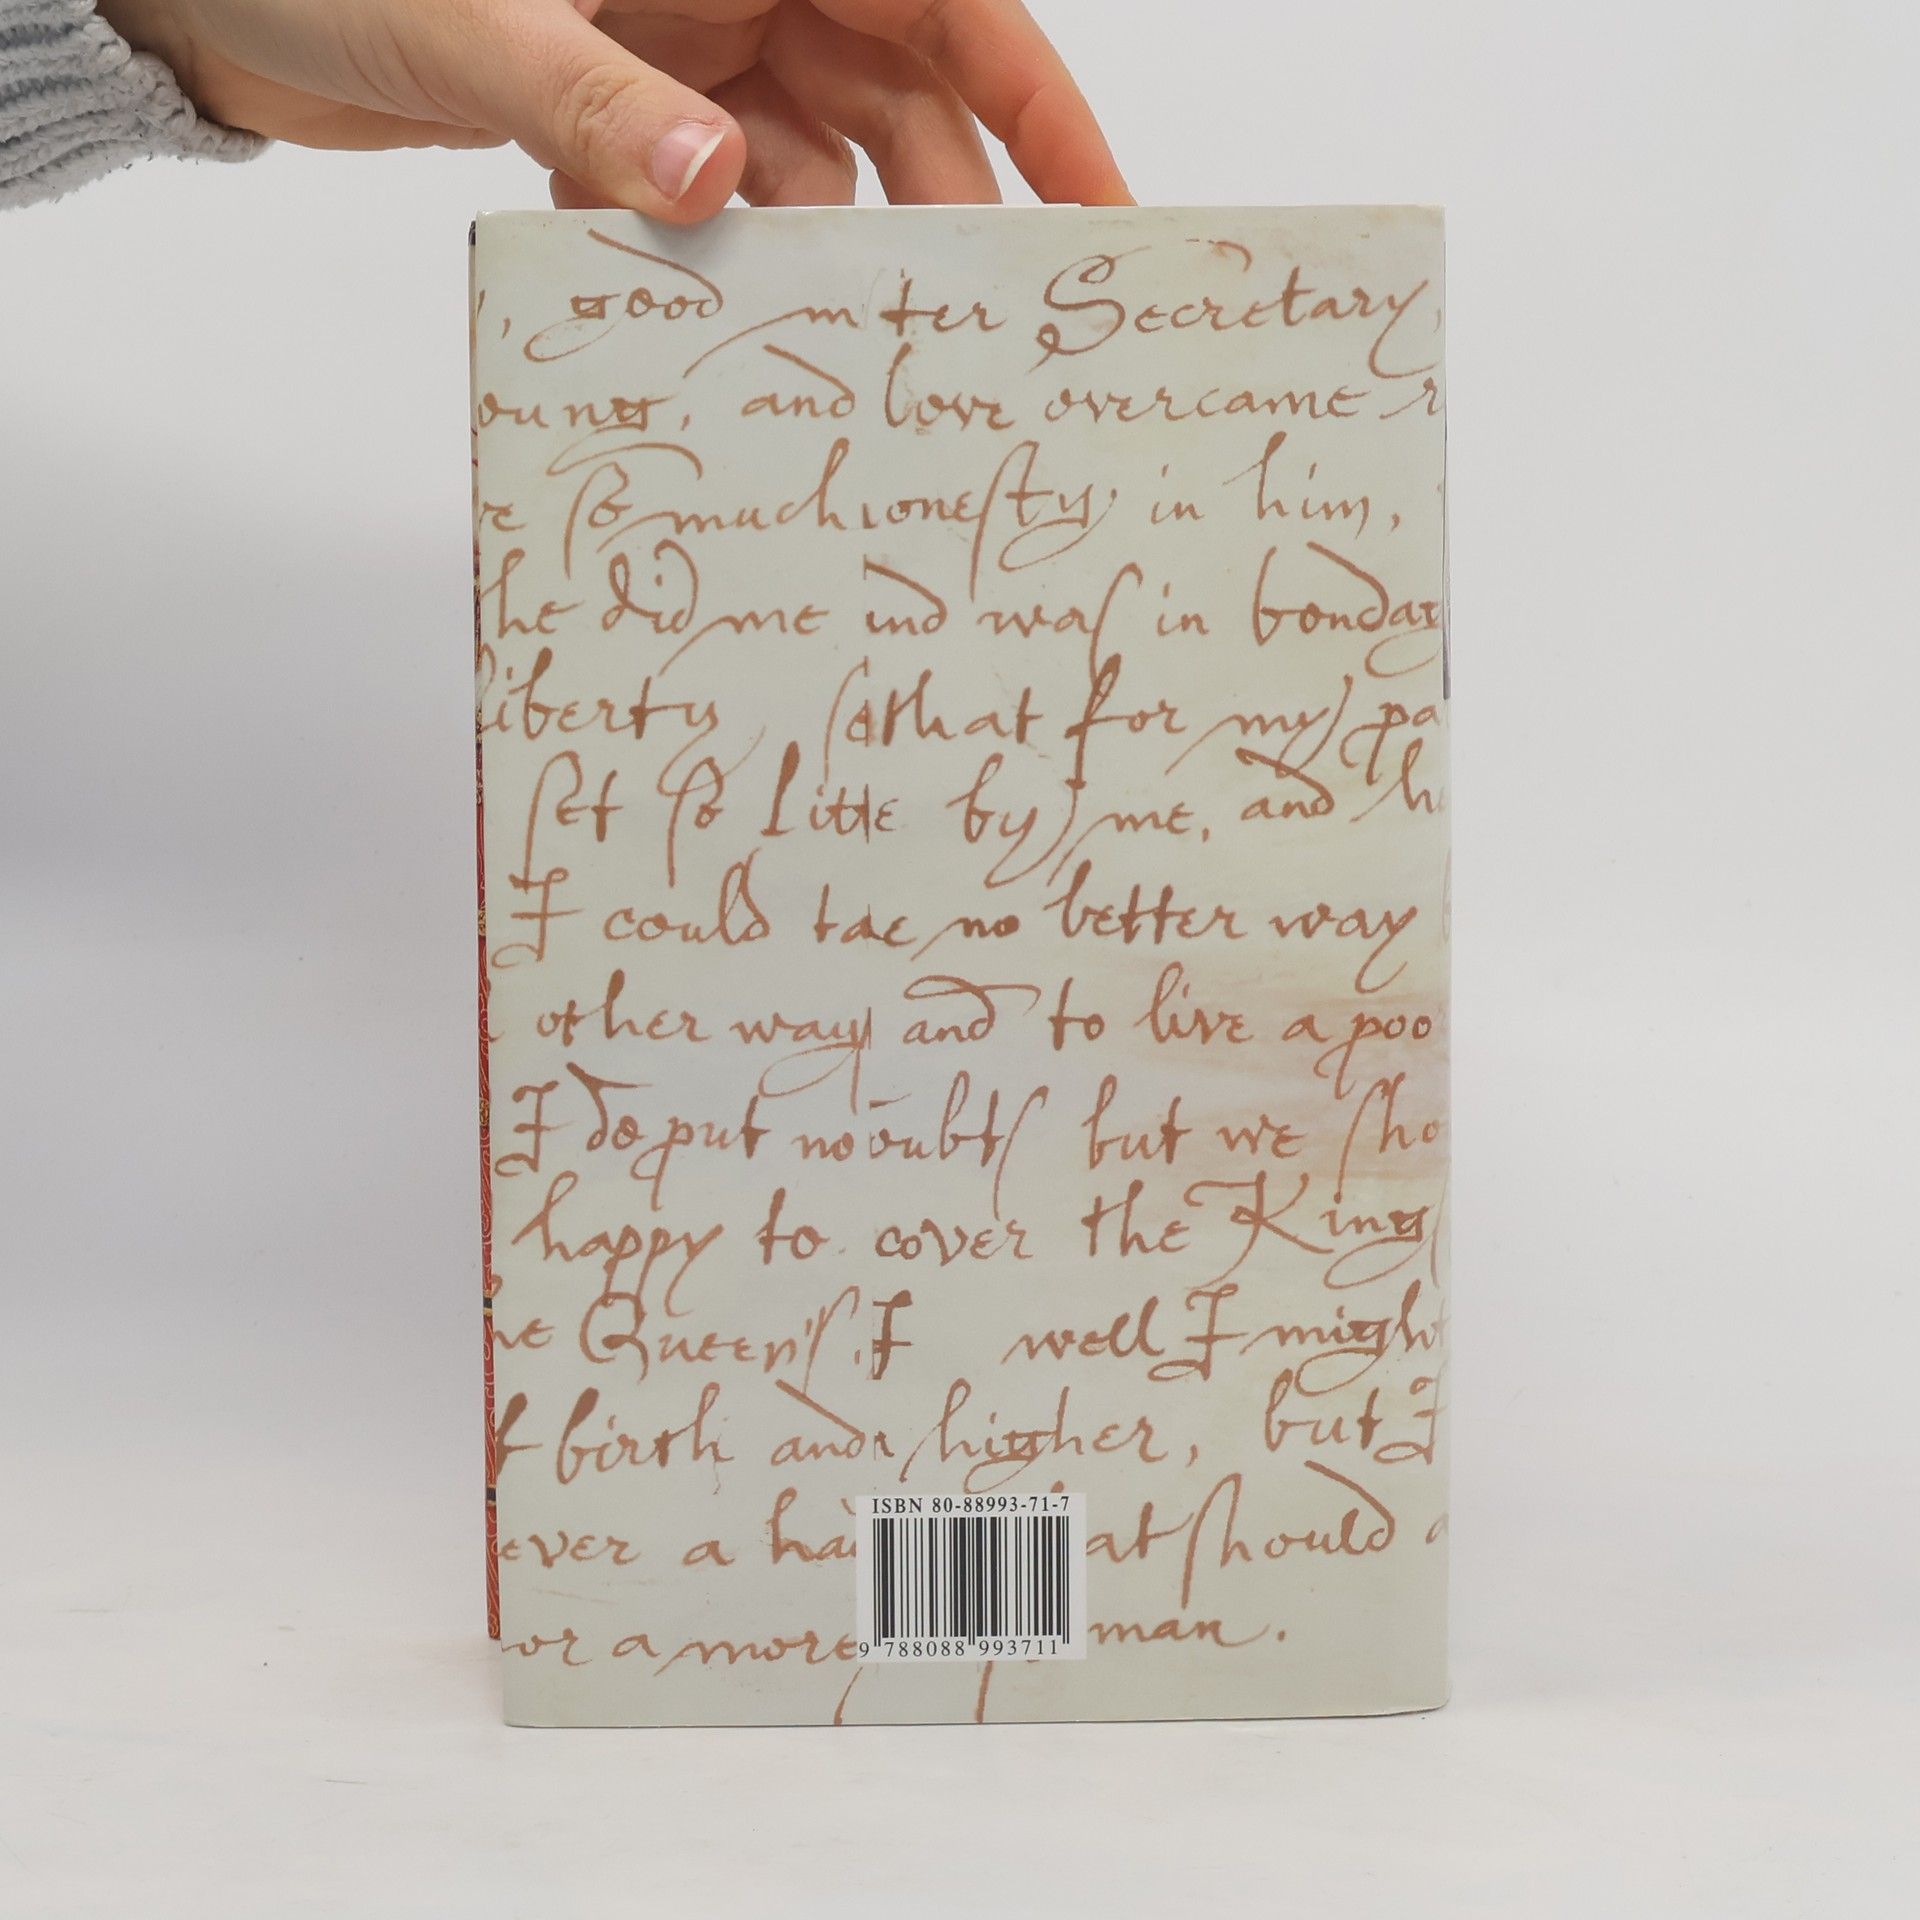 , good m ter Secretary,
oung, and love overcame r
re so much onesty in him,
he did me ind was in bondag
liberty so that for my pa
set so litle by me, and h
I could tae no better way
other way and to live a poo
I do put no oubts but we sho
happy to cover the King
he Queen's. I well I might
f birth and higher, but I
ever a ha at should a
or a more man.
ISBN 80-88993-71-7
9 788088 993711